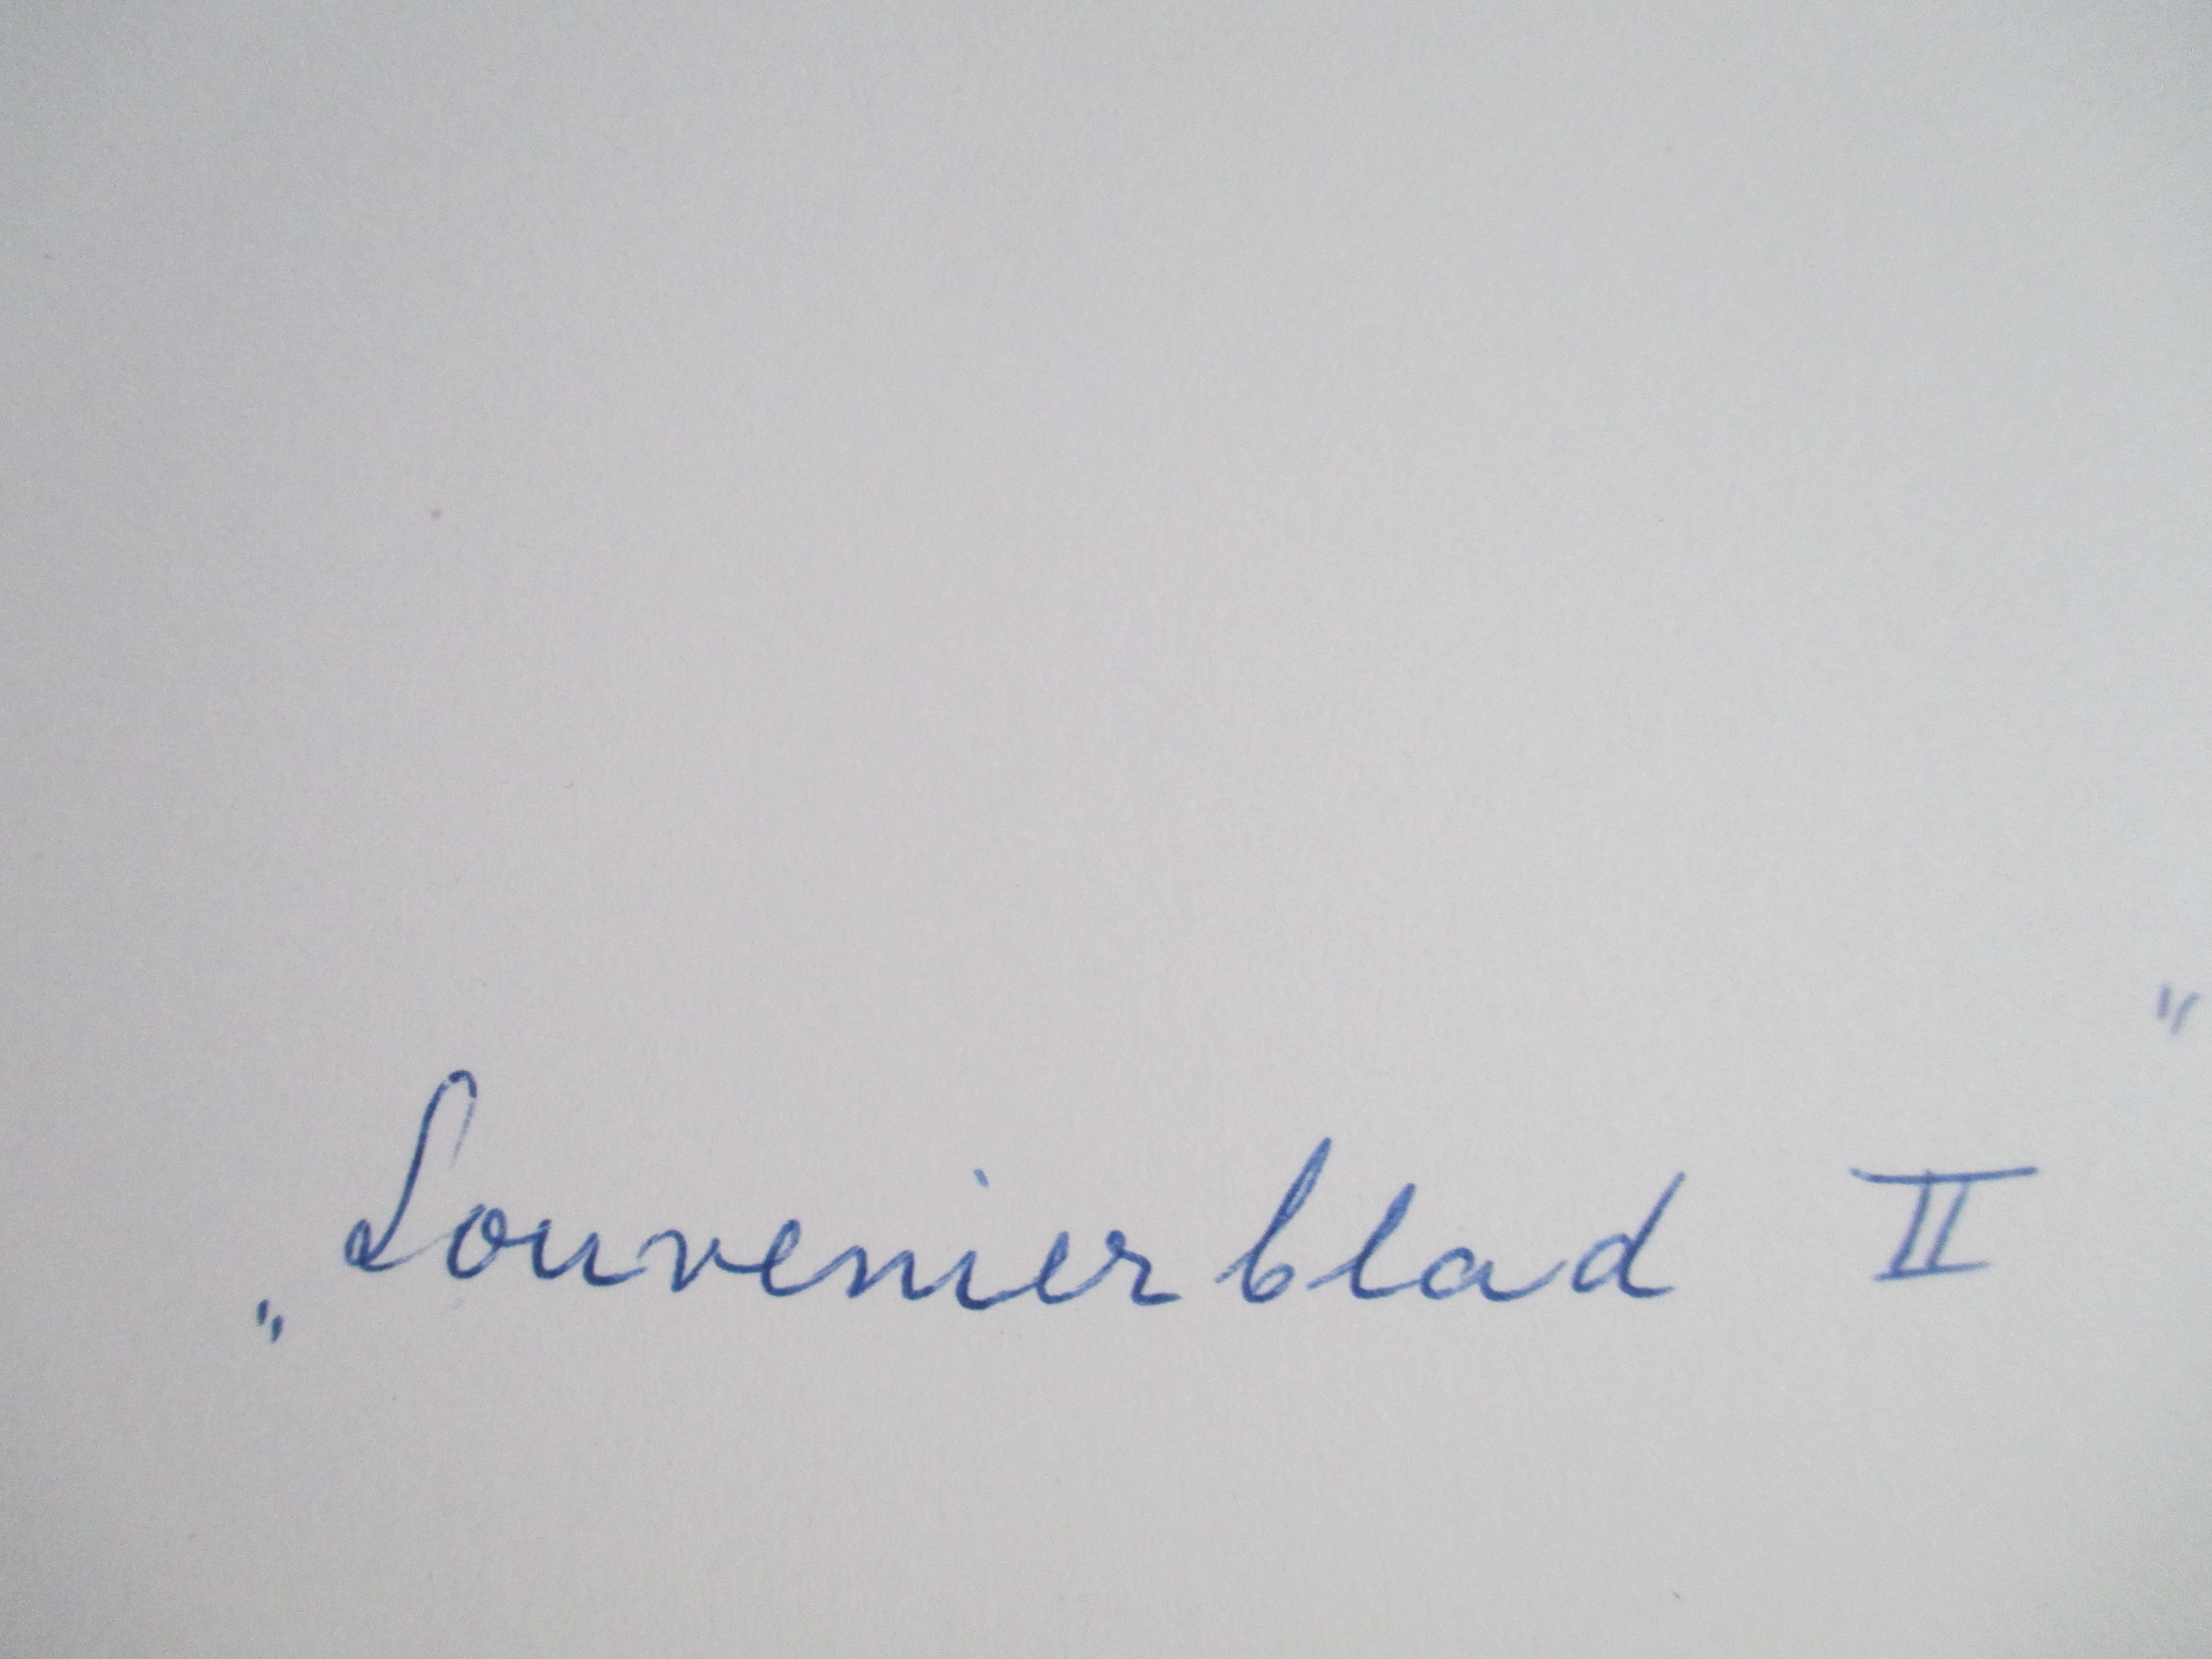 „Souvenierblad II"